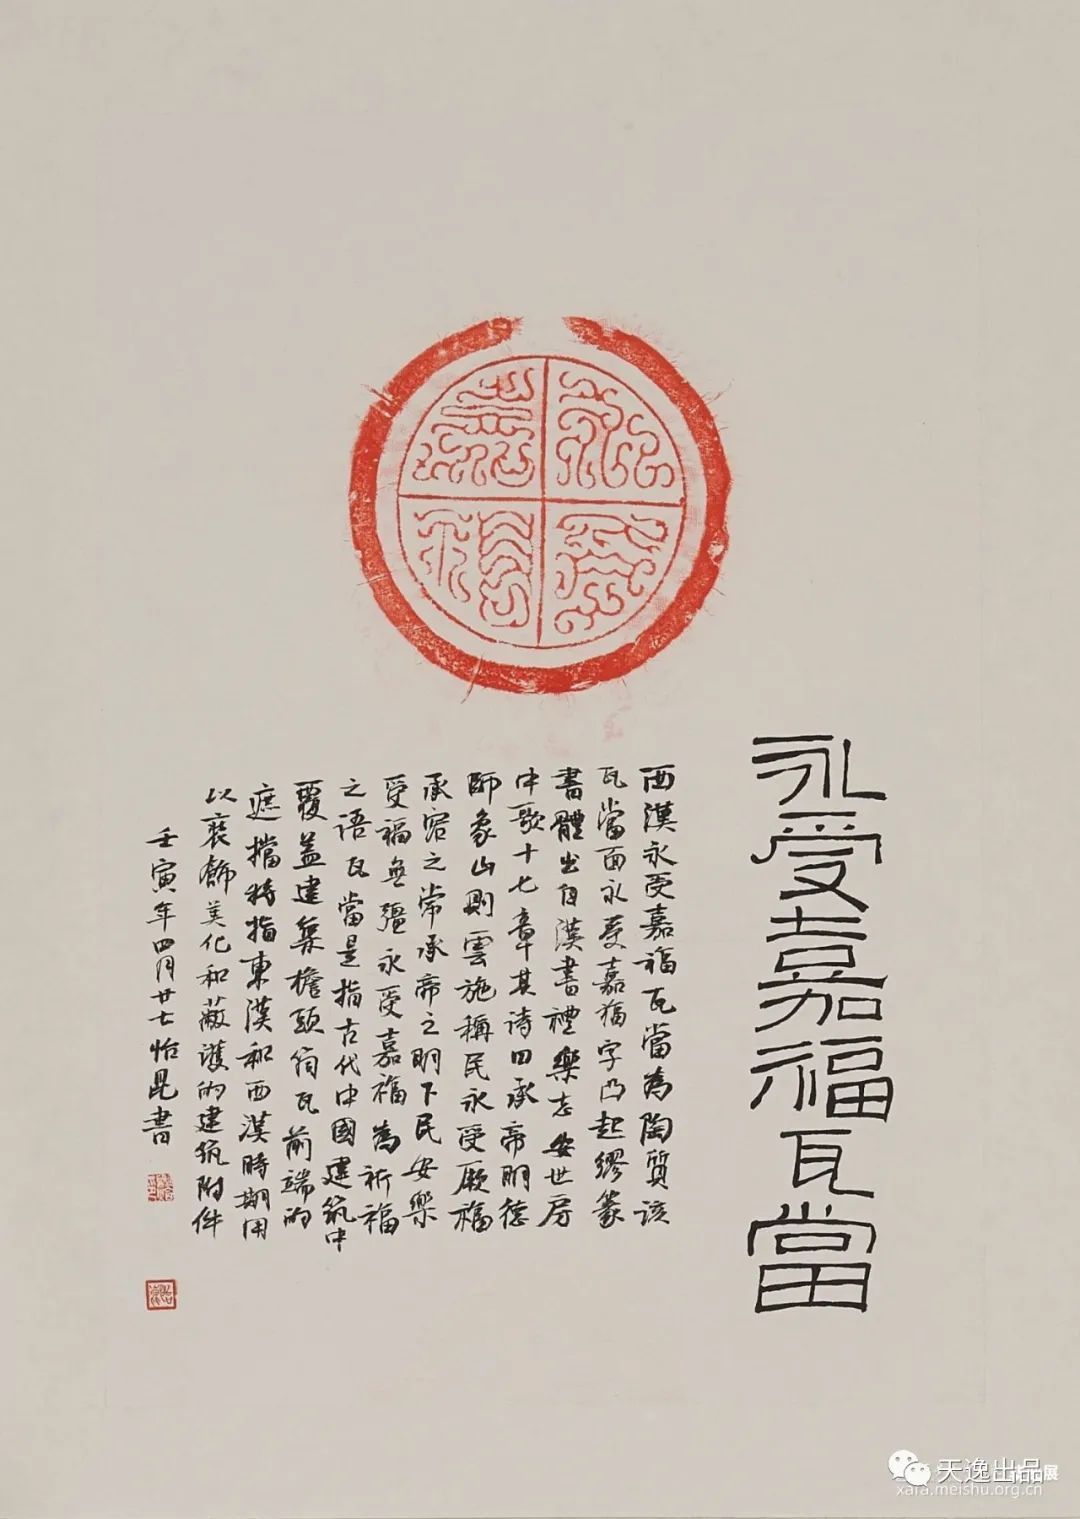 永受嘉福
永受嘉福瓦當
西漢永受嘉福瓦當為陶質該
瓦當面永受嘉福字凸起繆篆
書體出自漢書禮樂志安世房
中歌十七章其詩曰承帝明德
師象山則雲施稱民永受厥福
承容之常承帝之明下民安樂
受福無疆永受嘉福為祈福
之語瓦當是指古代中國建筑中
覆盖建築檐頭筒瓦前端的
遮擋特指東漢和西漢時期用
以裝飾美化和蔽護的建筑附件
壬寅年四月廿七怡昆書
天逸出品
xafa.meishu.org.cn